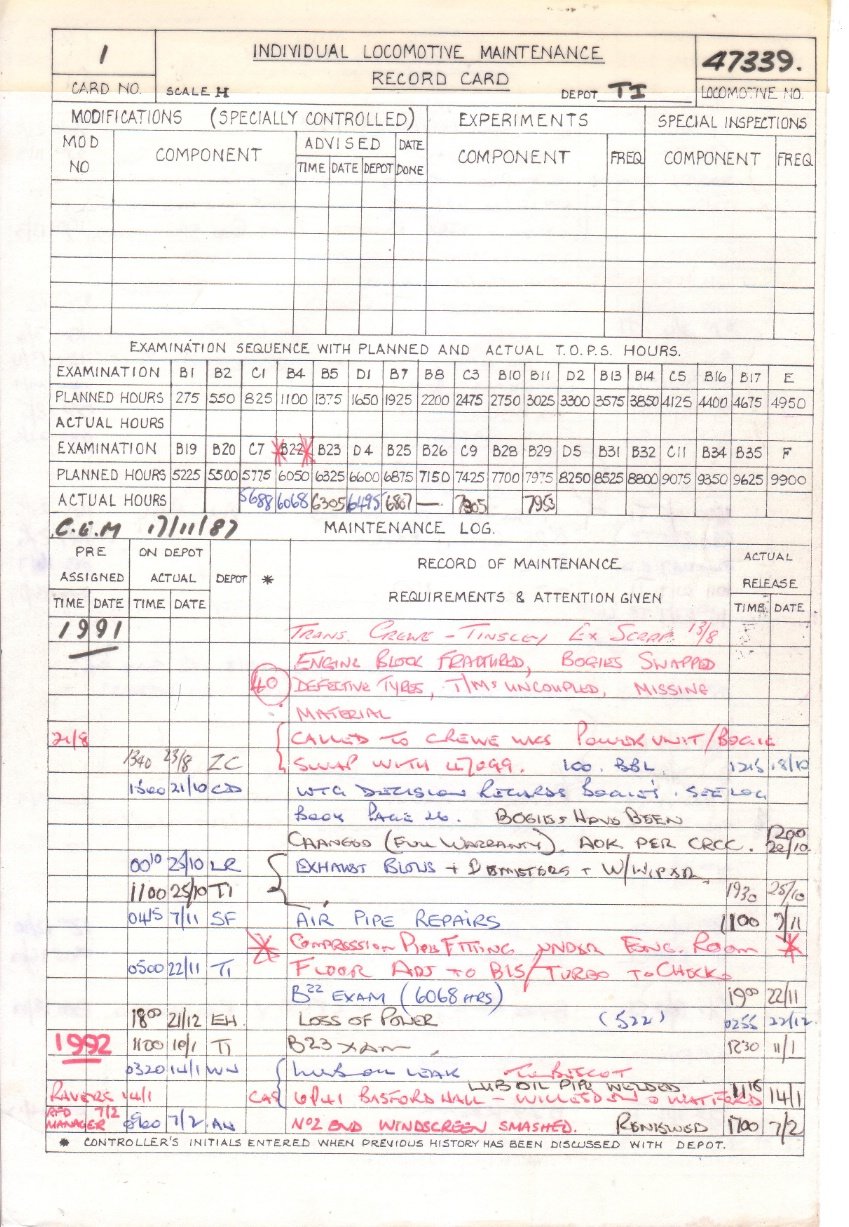 1 INDIVIDUAL LOCOMOTIVE MAINTENANCE 47339.
CARD NO. SCALE H RECORD CARD DEPOT TI LOCOMOTIVE NO.
MODIFICATIONS (SPECIALLY CONTROLLED) EXPERIMENTS SPECIAL INSPECTIONS
MOD NO COMPONENT ADVISED DATE DONE COMPONENT FREQ COMPONENT FREQ
TIME DATE DEPOT
EXAMINATION SEQUENCE WITH PLANNED AND ACTUAL T.O.P.S. HOURS.
EXAMINATION B1 B2 C1 B4 B5 D1 B7 B8 C3 B10 B11 D2 B13 B14 C5 B16 B17 E
PLANNED HOURS 275 550 825 1100 1375 1650 1925 2200 2475 2750 3025 3300 3575 3850 4125 4400 4675 4950
ACTUAL HOURS
EXAMINATION B19 B20 C7 B22 B23 D4 B25 B26 C9 B28 B29 D5 B31 B32 C11 B34 B35 F
PLANNED HOURS 5225 5500 5775 6050 6325 6600 6875 7150 7425 7700 7975 8250 8525 8800 9075 9350 9625 9900
ACTUAL HOURS 5688 6068 6305 6495 6867 — 7305 7953
C.E.M 17/11/87 MAINTENANCE LOG.
PRE ASSIGNED ON DEPOT ACTUAL DEPOT * RECORD OF MAINTENANCE REQUIREMENTS & ATTENTION GIVEN ACTUAL RELEASE
TIME DATE TIME DATE TIME DATE
1991 TRANS. CREWE – TINSLEY EX SCRAP 13/8
ENGINE BLOCK FRACTURED, BOGIES SWAPPED
40 DEFECTIVE TYRES, T/Ms UNCOUPLED, MISSING
MATERIAL
21/8 CALLED TO CREWE WKS POWER UNIT/BOGIE
1340 23/8 ZC SWAP WITH 47099. 100. BBL. 1215 18/10
1500 21/10 CD WTG DECISION RECORDS BOGIES. SEE LOG
BOOK PAGE 26. BOGIES HAVE BEEN
CHANGED (FULL WARRANTY). AOK PER CRCC. 1200 22/10
0010 25/10 LR EXHAUST BLOWS + DEMISTERS + W/WIPER
1100 25/10 TI 1930 25/10
0415 7/11 SF AIR PIPE REPAIRS 1100 9/11
COMPRESSION PIPE FITTING UNDER ENG. ROOM
0500 22/11 TI FLOOR ADJ TO B15/TURBO TO CHECK
B22 EXAM (6068 HRS) 1900 22/11
1800 21/12 EH LOSS OF POWER (522) 0255 22/12
1992 1100 10/1 TI B23 XAM 1230 11/1
0320 14/1 WN LUB OIL LEAK
LUB OIL PIPE WELDED
14/1 6P41 BASFORD HALL – WILLESDEN 14/1
RFD MANAGER 7/2 7/2 No2 END WINDSCREEN SMASHED. RENEWED 1700 7/2
* CONTROLLER'S INITIALS ENTERED WHEN PREVIOUS HISTORY HAS BEEN DISCUSSED WITH DEPOT.